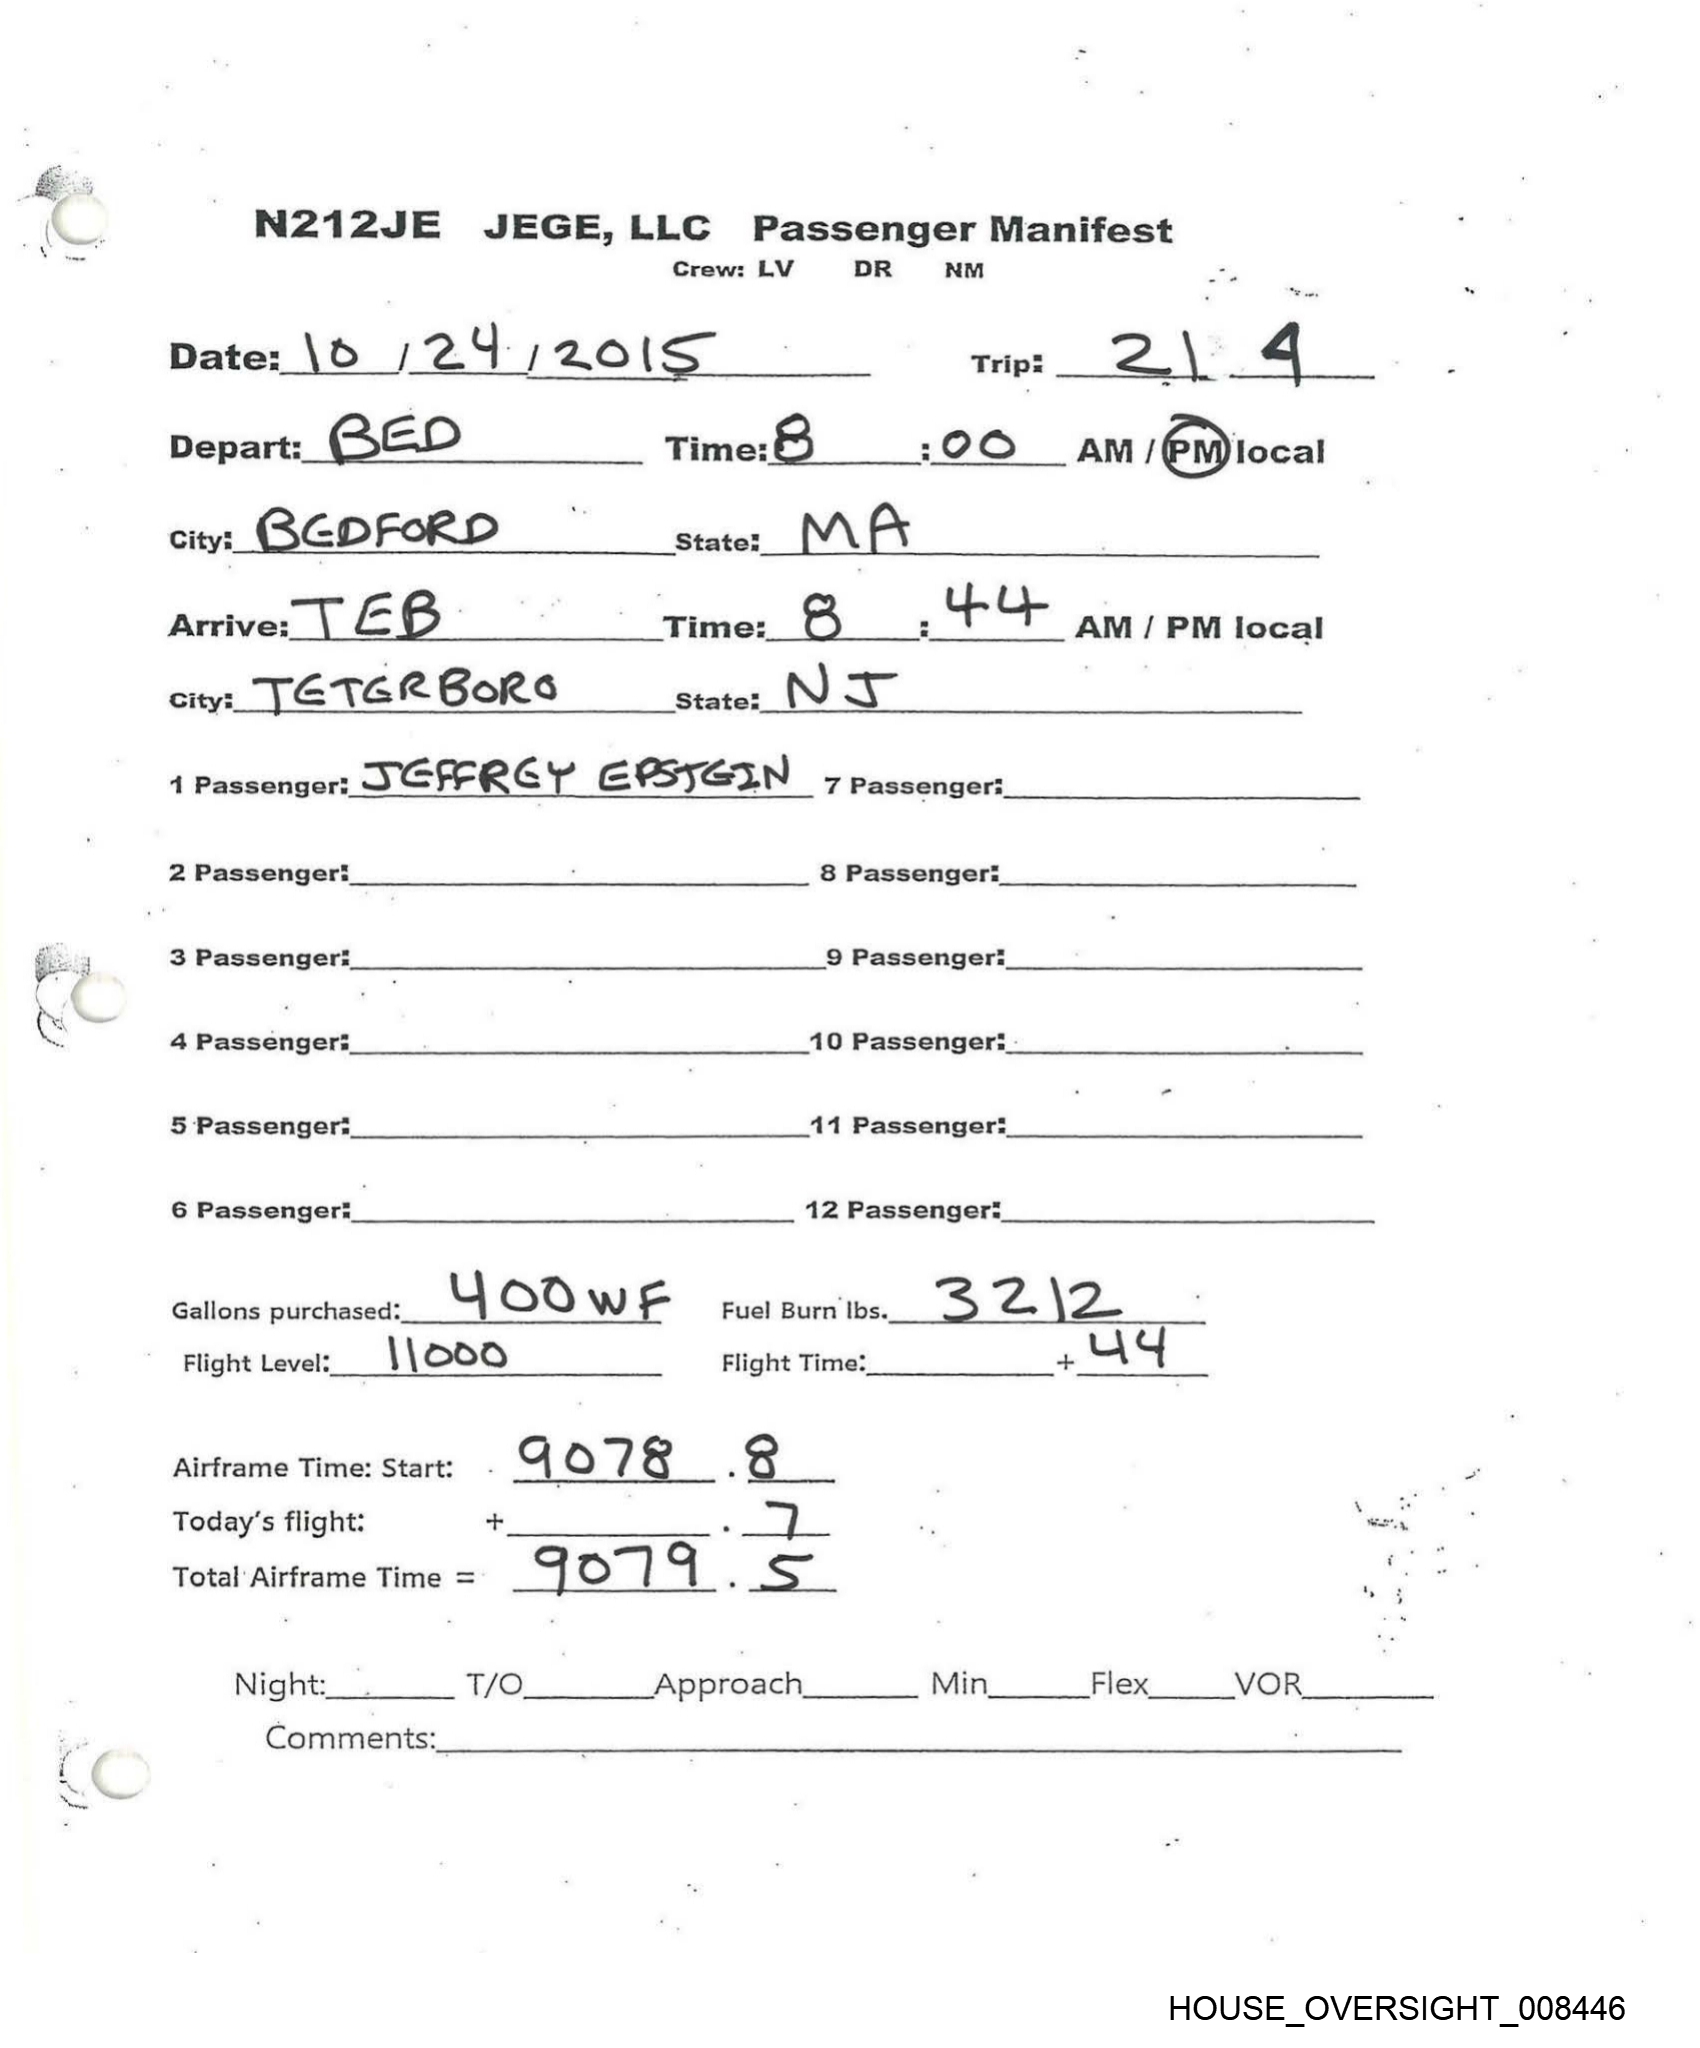 N212JE JEGE, LLC Passenger Manifest
Crew: LV DR NM
Date: 10 / 24 / 2015 Trip: 21 4
Depart: BED Time: 8 : 00 AM / PM local
City: BEDFORD State: MA
Arrive: TEB Time: 8 : 44 AM / PM local
City: TETERBORO State: NJ
1 Passenger: JEFFREY EPSTEIN 7 Passenger:
2 Passenger: 8 Passenger:
3 Passenger: 9 Passenger:
4 Passenger: 10 Passenger:
5 Passenger: 11 Passenger:
6 Passenger: 12 Passenger:
Gallons purchased: 400 WF Fuel Burn lbs. 3212
Flight Level: 11000 Flight Time: + 44
Airframe Time: Start: 9078 . 8
Today's flight: + . 7
Total Airframe Time = 9079 . 5
Night: T/O Approach Min Flex VOR
Comments:
HOUSE_OVERSIGHT_008446